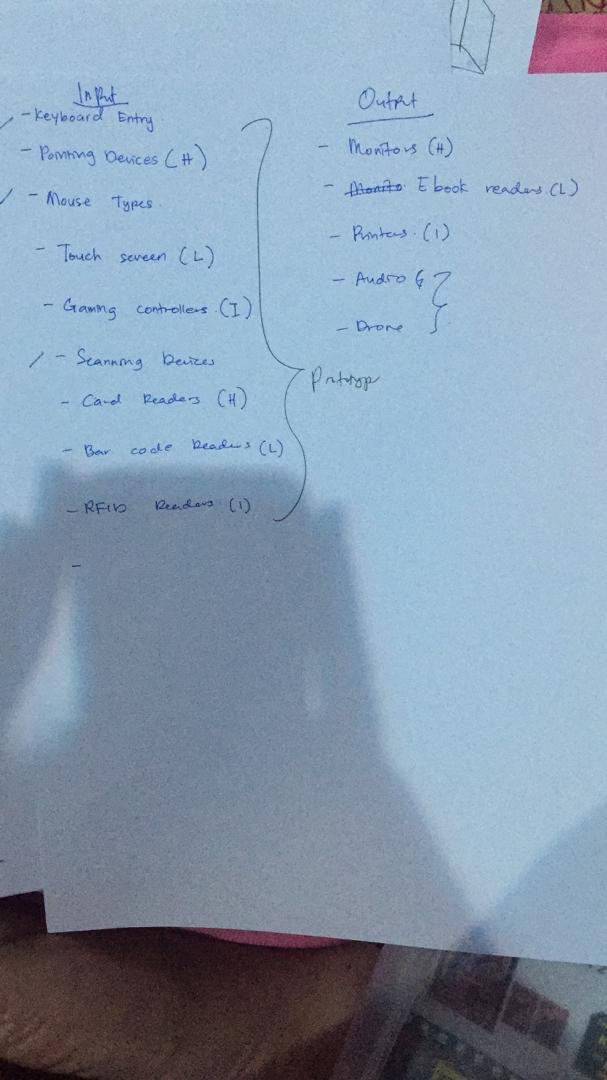 Input
- Keyboard Entry
- Pointing Devices (H)
- Mouse Types
- Touch screen (L)
- Gaming controllers (I)
- Scanning Devices
- Card Readers (H)
- Bar code Readers (L)
- RFID Readers (I)
-
Output
- Monitors (H)
- Ebook readers (L)
- Printers (I)
- Audio
- Drone